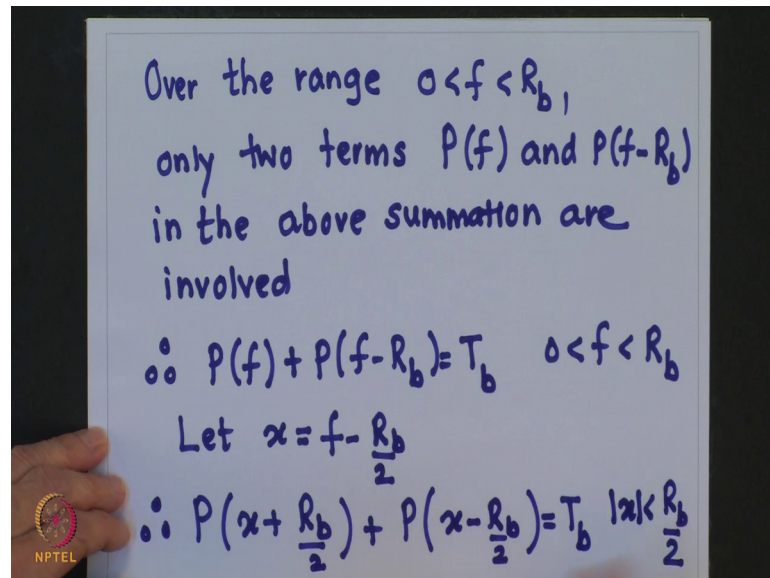 Over the range 0<f<R_b,
only two terms P(f) and P(f-R_b)
in the above summation are
involved
∴ P(f) + P(f-R_b) = T_b 0<f<R_b
Let x = f - R_b/2
∴ P(x + R_b/2) + P(x - R_b/2) = T_b |x| < R_b/2
NPTEL